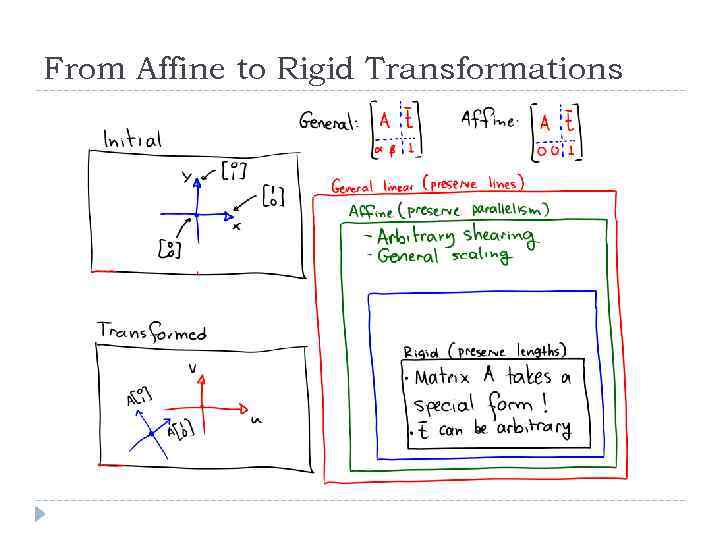 From Affine to Rigid Transformations
General: [A t̄
α β 1]
Affine: [A t̄
0 0 1]
Initial
y
[0
1]
[1
0]
x
[0
0]
General linear (preserve lines)
Affine (preserve parallelism)
- Arbitrary shearing
- General scaling
Transformed
v
u
A[0
1]
A[1
0]
Rigid (preserve lengths)
• Matrix A takes a
special form!
• t̄ can be arbitrary